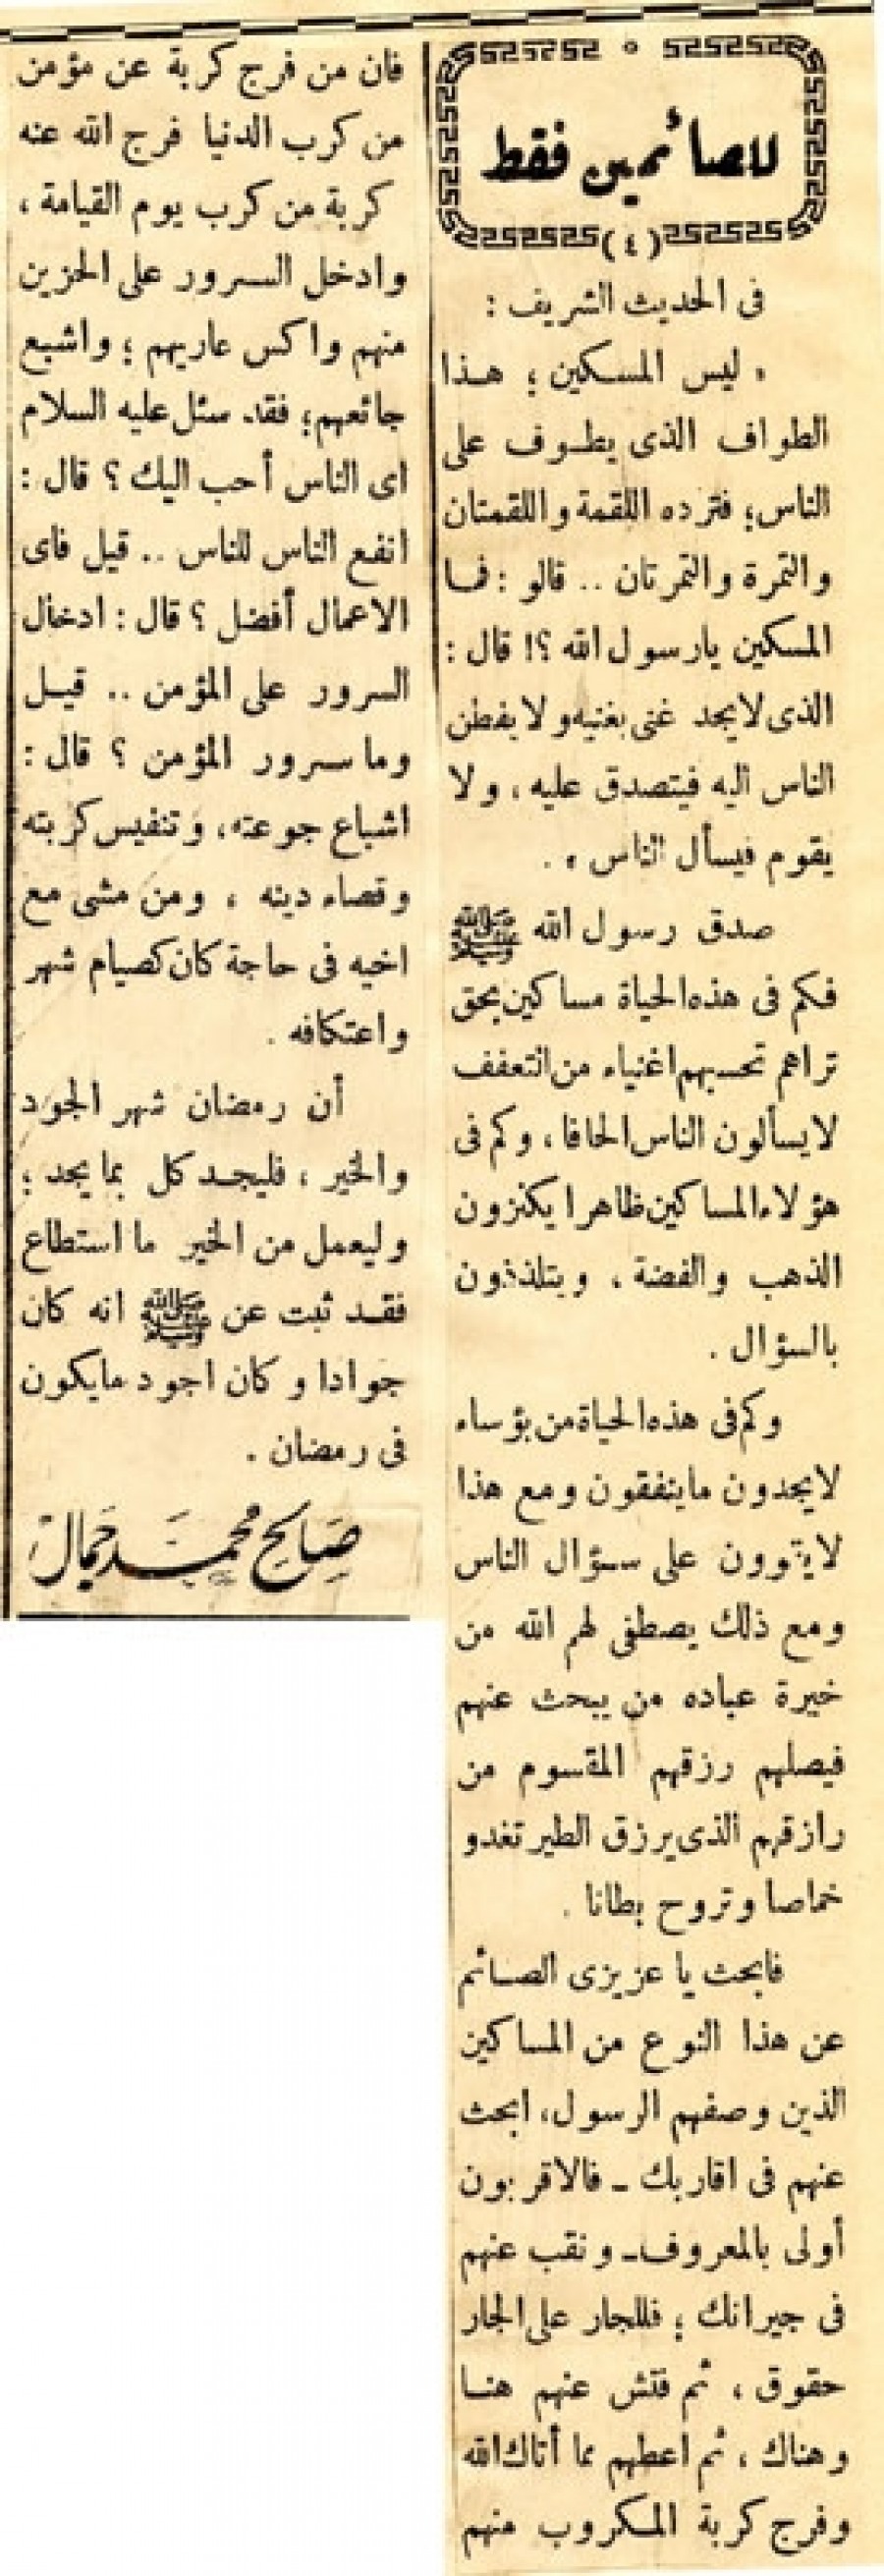 للصائمين فقط
(٤)
فى الحديث الشريف :
« ليس المسكين ؛ هذا
الطواف الذى يطوف على
الناس؛ فترده اللقمة واللقمتان
والتمرة والتمرتان .. قالو : فما
المسكين يارسول الله ؟! قال :
الذى لايجد غنى يغنيه ولا يفطن
الناس اليه فيتصدق عليه ، ولا
يقوم فيسأل الناس » .
صدق رسول الله ﷺ
فكم فى هذه الحياة مساكين بحق
تراهم تحسبهم اغنياء من التعفف
لايسألون الناس الحافا ، وكم فى
هؤلاء المساكين ظاهرا يكنزون
الذهب والفضة ، ويتلذذون
بالسؤال .
وكم فى هذه الحياة من بؤساء
لايجدون ماينفقون ومع هذا
لايقوون على سؤال الناس
ومع ذلك يصطفى لهم الله من
خيرة عباده من يبحث عنهم
فيصلهم رزقهم المقسوم من
رازقهم الذى يرزق الطير تغدو
خماصا وتروح بطانا .
فابحث يا عزيزى الصائم
عن هذا النوع من المساكين
الذين وصفهم الرسول ، ابحث
عنهم فى اقاربك ـ فالاقربون
أولى بالمعروف ـ ونقب عنهم
فى جيرانك ؛ فللجار على الجار
حقوق ، ثم فتش عنهم هنا
وهناك ، ثم اعطهم مما أتاك الله
وفرج كربة المكروب منهم
فان من فرج كربة عن مؤمن
من كرب الدنيا فرج الله عنه
كربة من كرب يوم القيامة ،
وادخل السرور على الحزين
منهم واكس عاريهم ؛ واشبع
جائعهم؛ فقد سئل عليه السلام
اى الناس أحب اليك ؟ قال :
انفع الناس للناس .. قيل فاى
الاعمال أفضل ؟ قال : ادخال
السرور على المؤمن .. قيل
وما سرور المؤمن ؟ قال :
اشباع جوعته، وتنفيس كربته
وقضاء دينه ، ومن مشى مع
اخيه فى حاجة كان كصيام شهر
واعتكافه .
أن رمضان شهر الجود
والخير ، فليجد كل بما يجد ؛
وليعمل من الخير ما استطاع
فقد ثبت عن ﷺ انه كان
جوادا وكان اجود مايكون
فى رمضان .
صالح محمد جمال